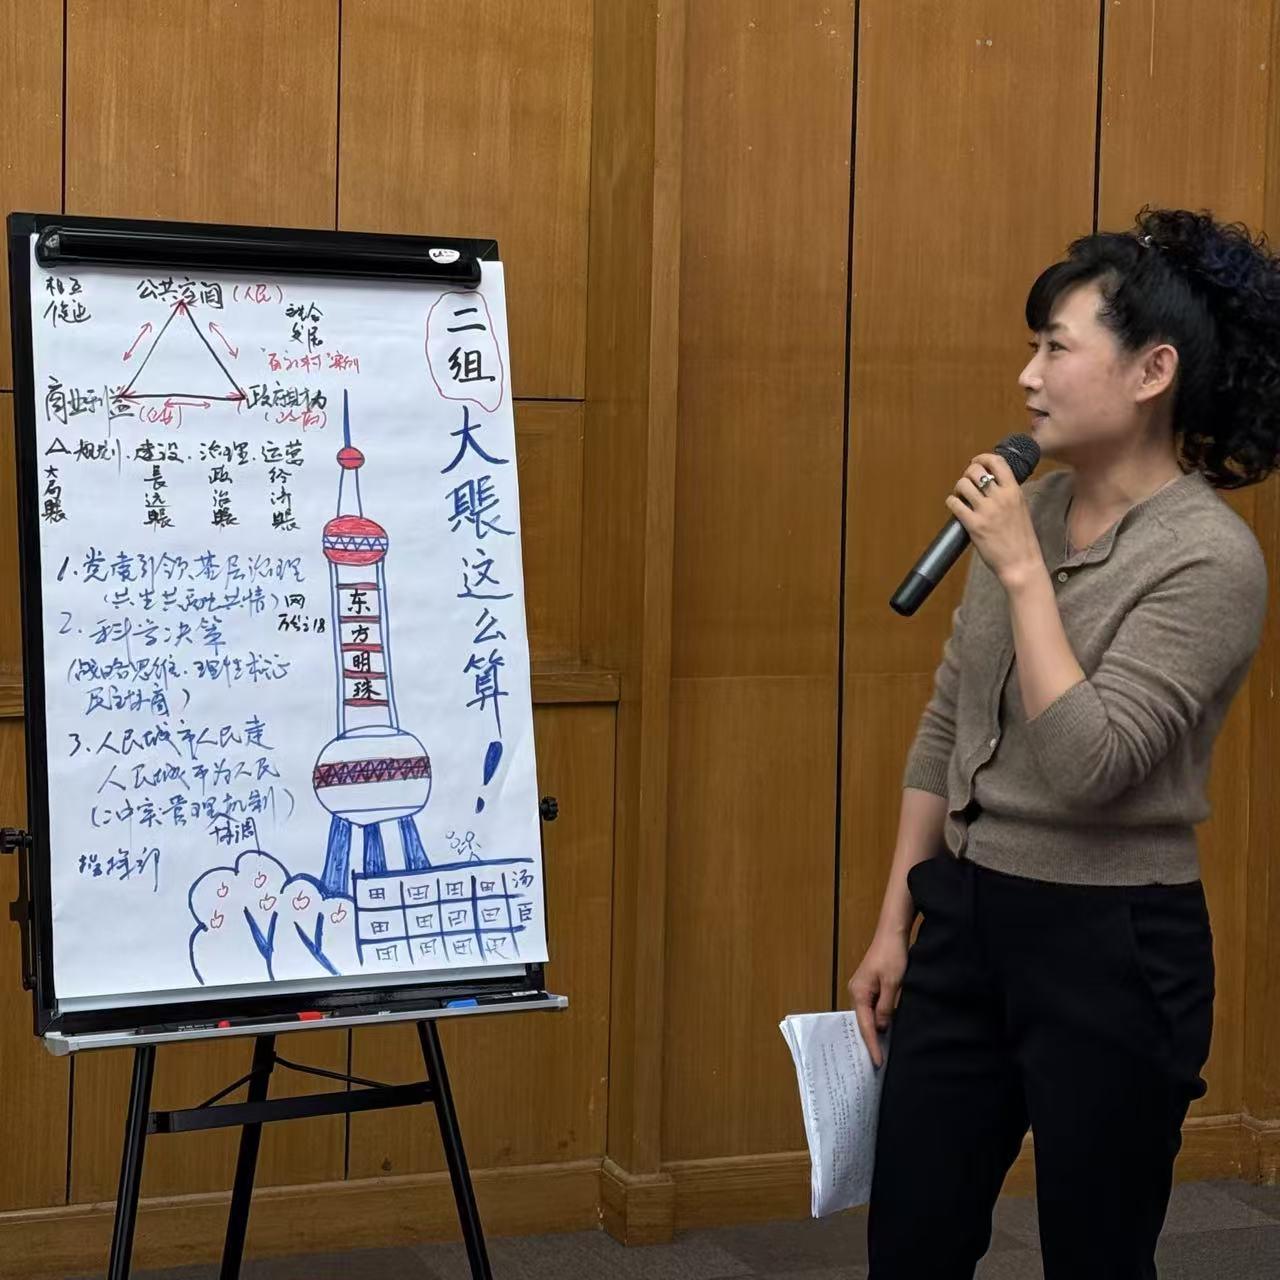 相互
促进
公共空间(人民)
结合
发展
案例
商业利益
政府
△规划.建设.治理.运营
大局账
長远账
政治账
经济账
1.党建引领基层治理
(共生共融共情)
2.科学决策
(战略思维.理性求证
民主协商)
3.人民城市人民建
人民城市为人民
(冲突管理机制)
协调
二组
大賬这么算!
东方明珠
汤臣